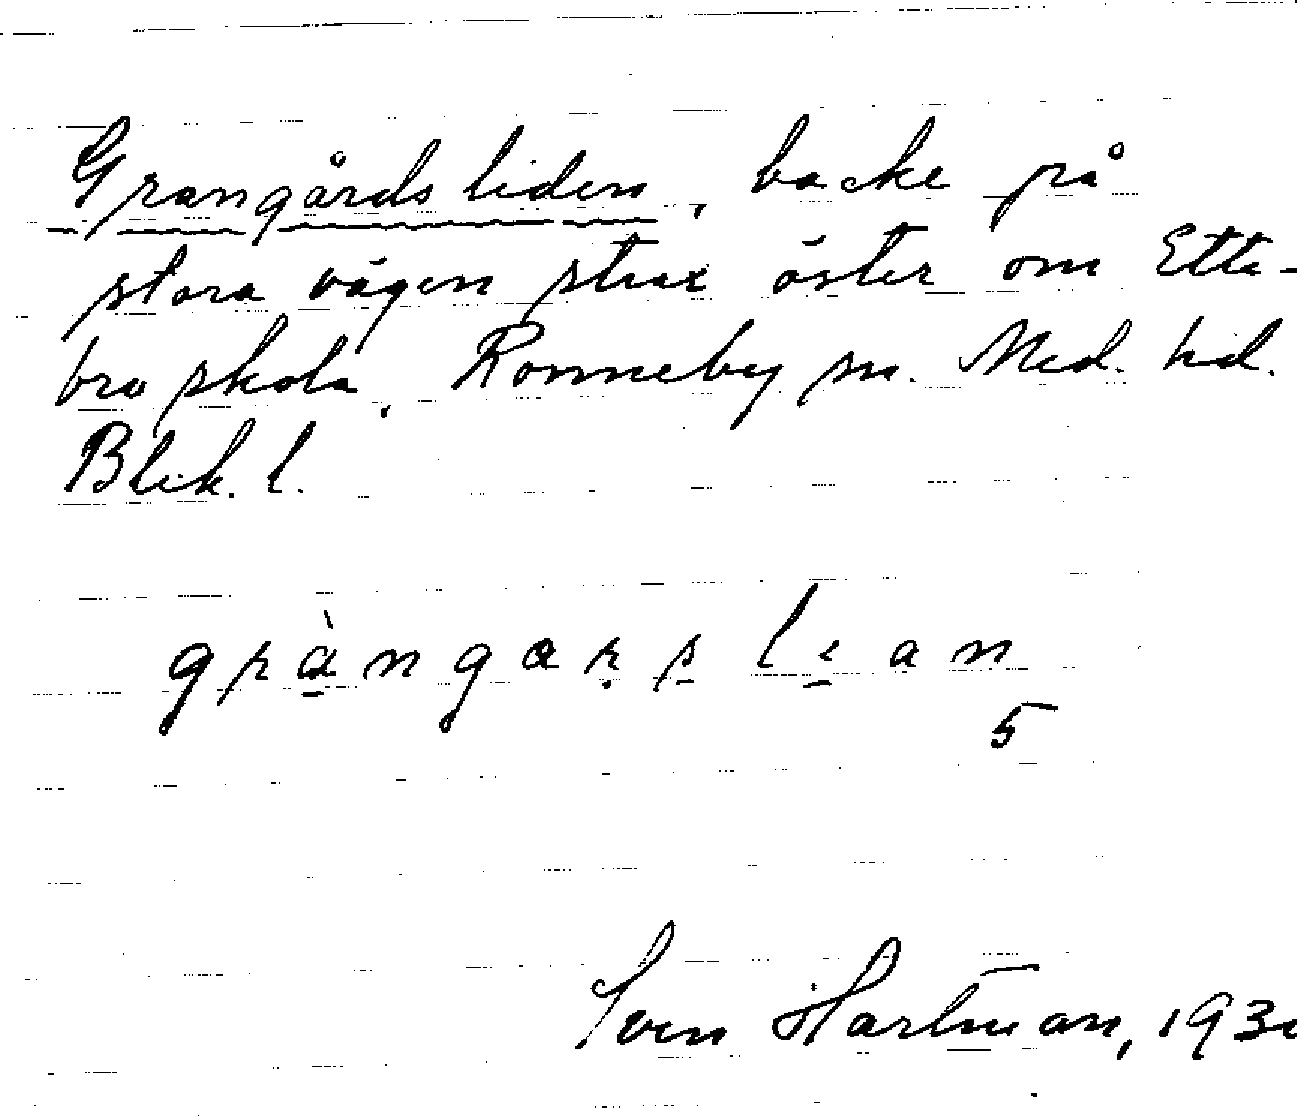 Grangårdsliden, backe på
stora vägen strax öster om Ette-
bro skola, Ronneby sn. Med. hd.
Blek. l.
gràngarslian
5
Sven Hartman, 193